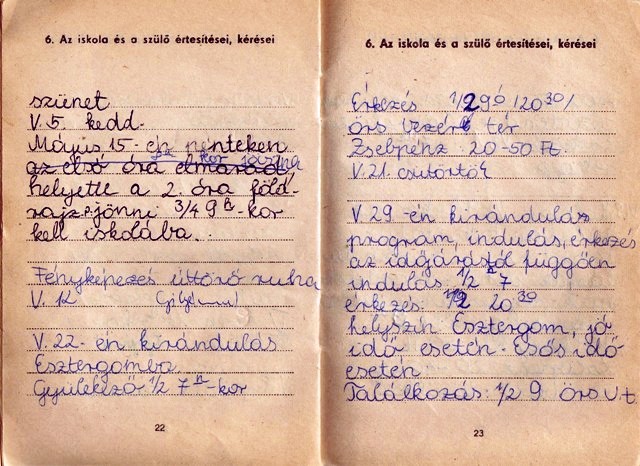 6. Az iskola és a szülő értesítései, kérései
szünet
V. 5. kedd.
Május 15-én pénteken
az első óra elmarad
helyette a 2. óra föld-
rajz jönni 3/4 9 h-kor
kell iskolába.
Fényképezés úttörő ruha
V. 12
V. 22-én kirándulás
Esztergomba
Gyülekező 1/2 7 h-kor
22
6. Az iskola és a szülő értesítései, kérései
Érkezés 1/2 9 /20 30/
örs vezér tér
Zsebpénz 20-50 Ft.
V. 21. csütörtök
V 29-én kirándulás
program, indulás, érkezés
az időjárástól függően
indulás 1/2 7
érkezés: 20 30
helyszín Esztergom, jó
idő esetén. Esős idő
esetén
Találkozás: 1/2 9 örs v. t.
23